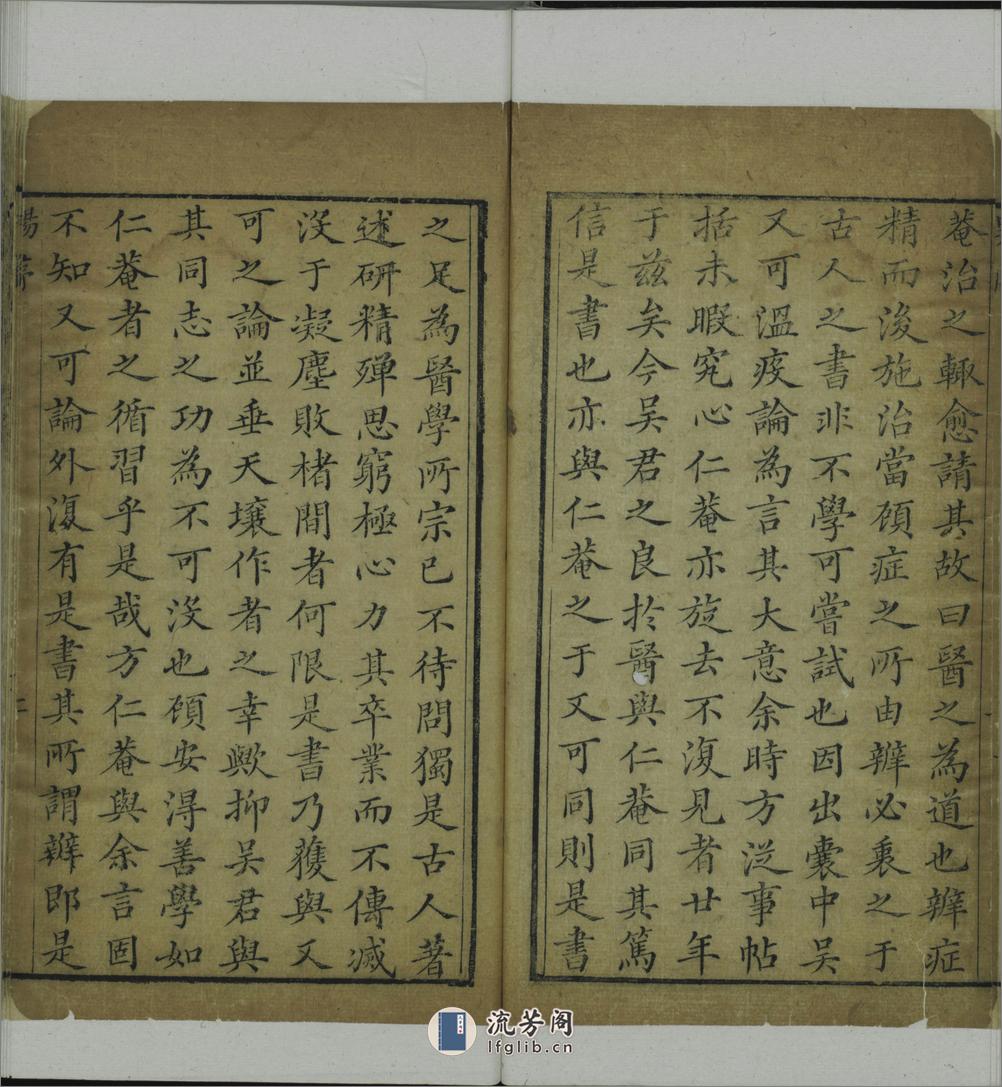 菴治之輙愈請其故曰醫之為道也辧症
精而浚施治當頋症之所由辧必衷之于
古人之書非不學可嘗試也因出囊中吴
又可溫疫論為言其大意余時方泛事帖
括未暇究心仁菴亦旋去不復見者廿年
于兹矣今吴君之良扵醫與仁菴同其篤
信是書也亦與仁菴之于又可同則是書
之足為醫學所宗已不待問獨是古人著
述研精殫思窮極心力其卒業而不傳滅
沒于凝塵敗楮間者何限是書乃獲與又
可之論並垂天壤作者之幸歟抑吴君與
其同志之功為不可沒也頋安淂善學如
仁菴者之循習乎是哉方仁菴與余言固
不知又可論外復有是書其所謂辧即是
二
流芳阁
lfglib.cn